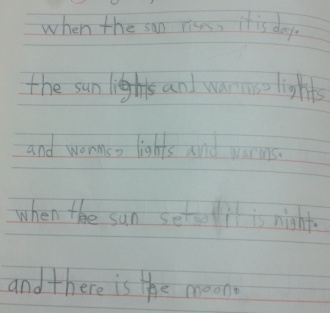 when the san rises, it is day.
the sun lights and warms, lights
and worms, lights and warms.
when the sun sets, it is night.
and there is the moon.